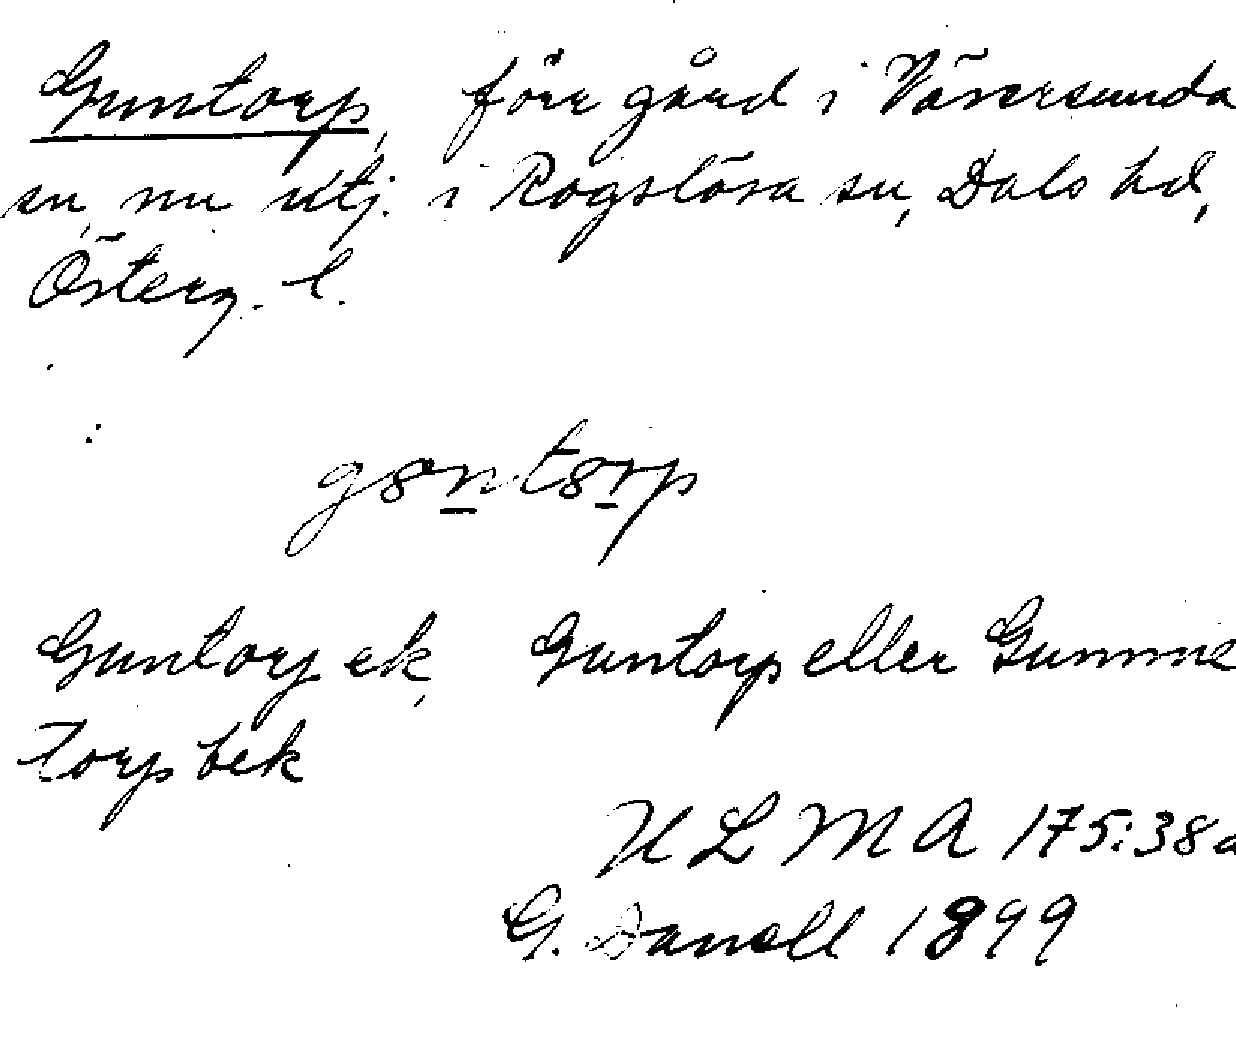 Guntorp, förr gård i Väversunda
sn, nu utj. i Rogslösa sn, Dals hd,
Österg. l.
Guntorp ek, Guntorp eller Gumme
torp bek
ULMA 175:38a
G. Danell 1899